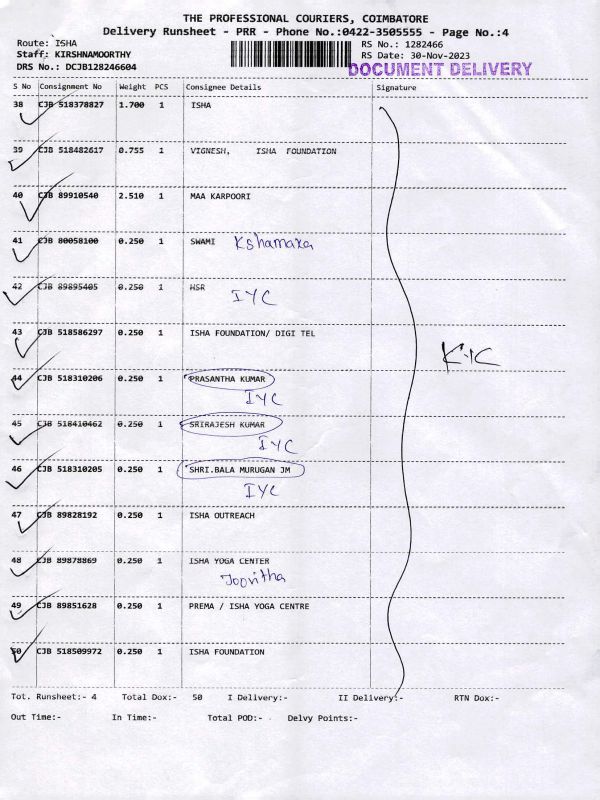 THE PROFESSIONAL COURIERS, COIMBATORE
Delivery Runsheet - PRR - Phone No.:0422-3505555 - Page No.:4
Route: ISHA
RS No.: 1282466
Staff: KIRSHNAMOORTHY
RS Date: 30-Nov-2023
DRS No.: DCJB128246604
DOCUMENT DELIVERY
S No Consignment No Weight PCS Consignee Details Signature
38 CJB 518378827 1.700 1 ISHA
39 CJB 518482617 0.755 1 VIGNESH, ISHA FOUNDATION
40 CJB 89910540 2.510 1 MAA KARPOORI
41 CJB 80058100 0.250 1 SWAMI Kshamaxa
42 CJB 89895405 0.250 1 HSR
IYC
43 CJB 518586297 0.250 1 ISHA FOUNDATION/ DIGI TEL
44 CJB 518310206 0.250 1 PRASANTHA KUMAR
IYC
45 CJB 518410462 0.250 1 SRIRAJESH KUMAR
IYC
46 CJB 518310205 0.250 1 SHRI.BALA MURUGAN JM
IYC
47 CJB 89828192 0.250 1 ISHA OUTREACH
48 CJB 89878869 0.250 1 ISHA YOGA CENTER
49 CJB 89851628 0.250 1 PREMA / ISHA YOGA CENTRE
50 CJB 518509972 0.250 1 ISHA FOUNDATION
Tot. Runsheet:- 4 Total Dox:- 50 I Delivery:- II Delivery:- RTN Dox:-
Out Time:- In Time:- Total POD:- Delvy Points:-